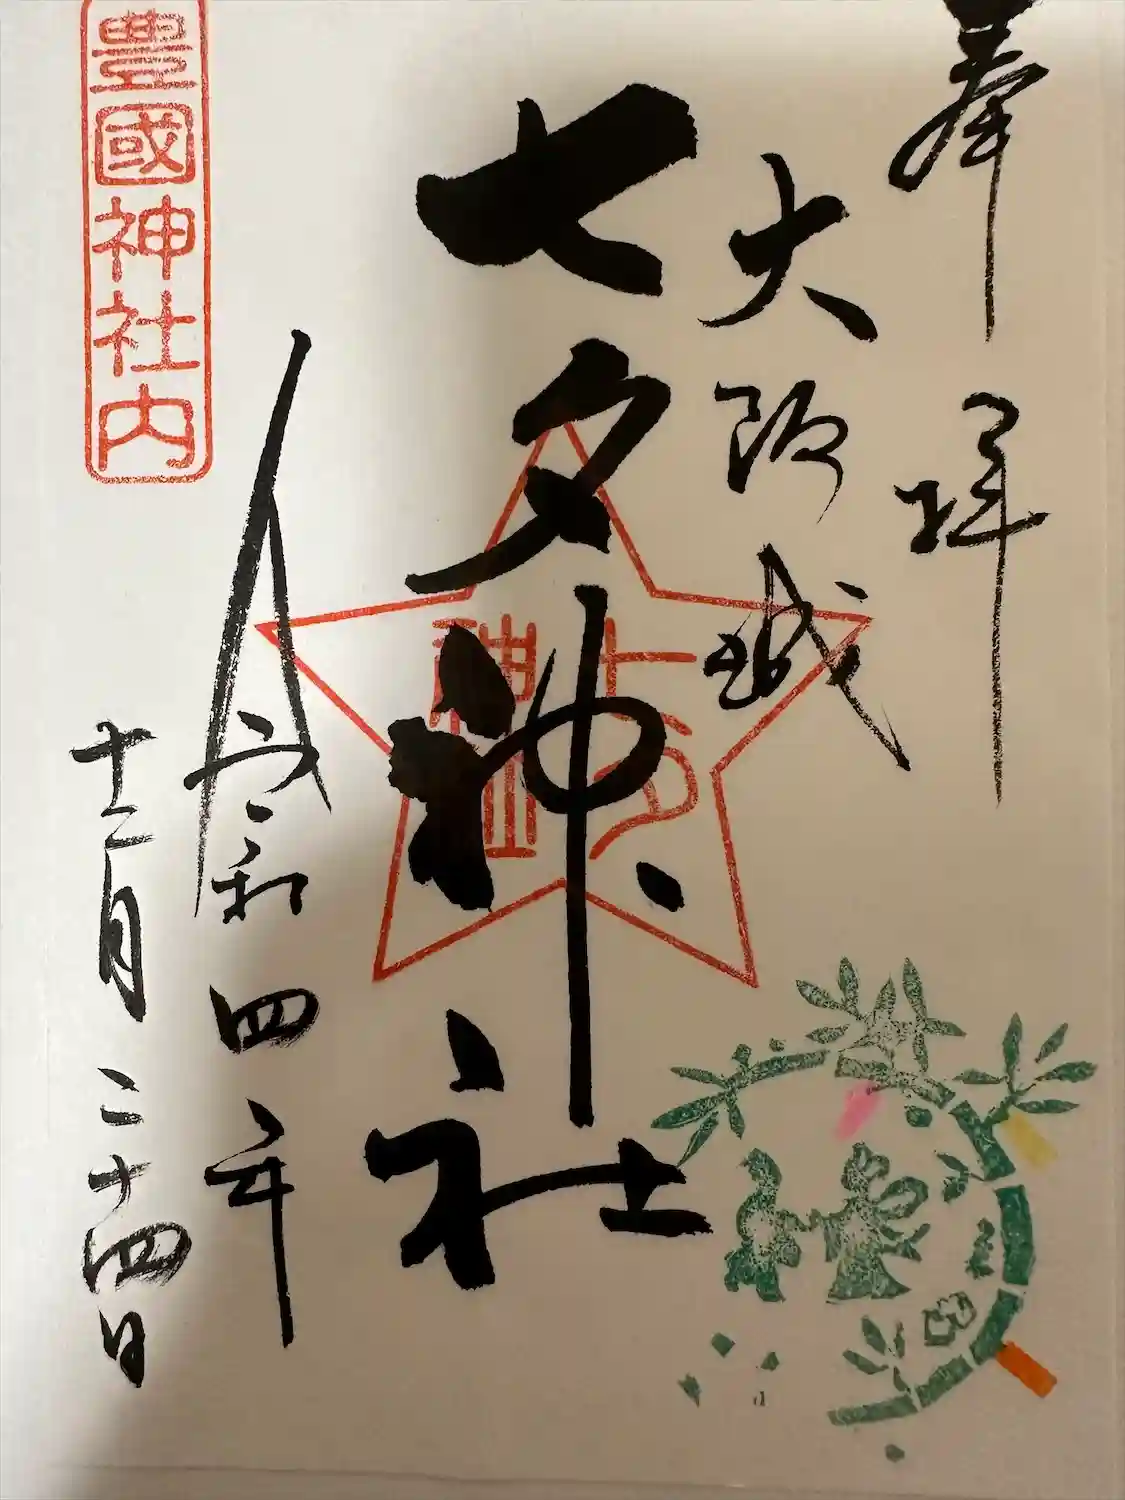 奉拝
大阪城
七夕神社
七夕
神社
令和四年
十二月二十四日
豊國神社内